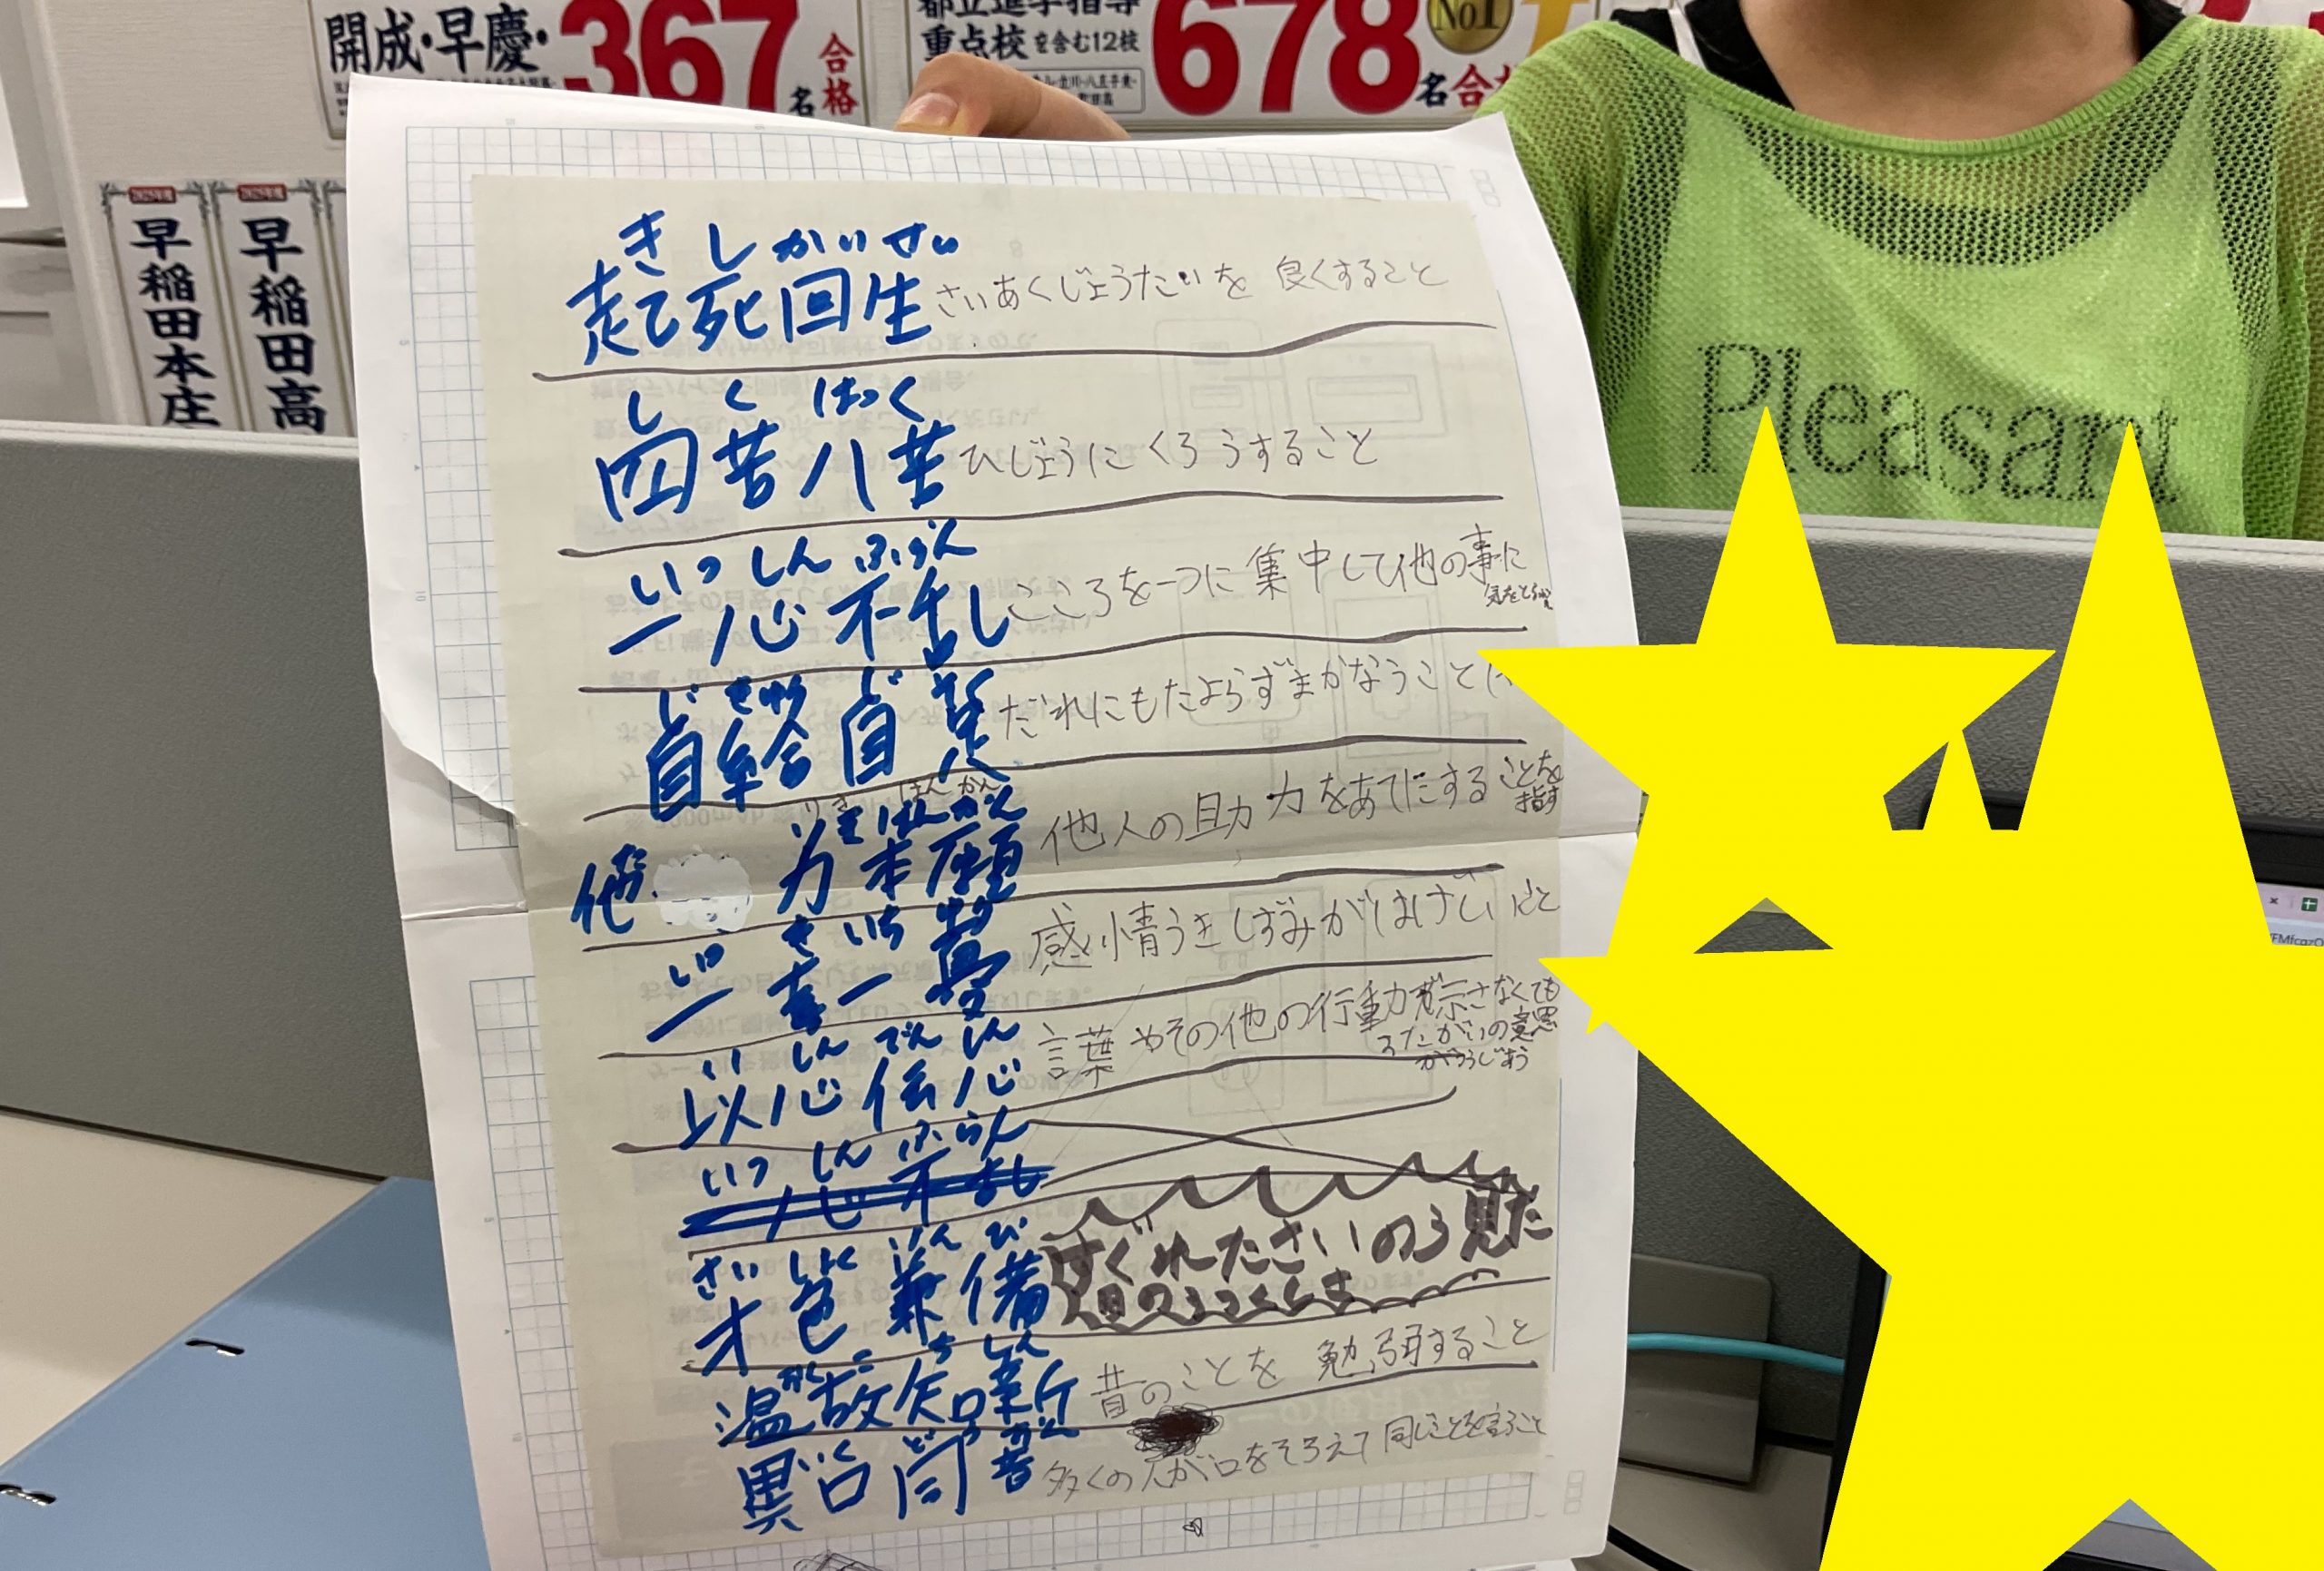 開成・早慶・
367
名
合格
重点校を含む12校
678
名合格
No1
早稲田本庄
早稲田高
Pleasant
きしかいせい
起死回生 さいあくじょうたいを 良くすること
しくはっく
四苦八苦 ひじょうにくろうすること
いっしんふらん
一心不乱 こころを一つに集中して他の事に
じきゅうじそく
自給自足 だれにもたよらずまかなうこと
りきほんがん
たりきほんがん
他力本願 他人の助力をあてにすることを
指す
いっきいちゆう
一喜一憂 感情うきしずみがはげしいこと
いしんでんしん
以心伝心 言葉やその他の行動が示さなくても
おたがいの意思
がつうじあう
いっしんふらん
さいしょくけんび
才色兼備 すぐれたさいのう見た
目のうつくしさ
おんこちしん
温故知新 昔のことを 勉強すること
いくどうおん
異口同音 多くの人が口をそろえて同じことを言うこと